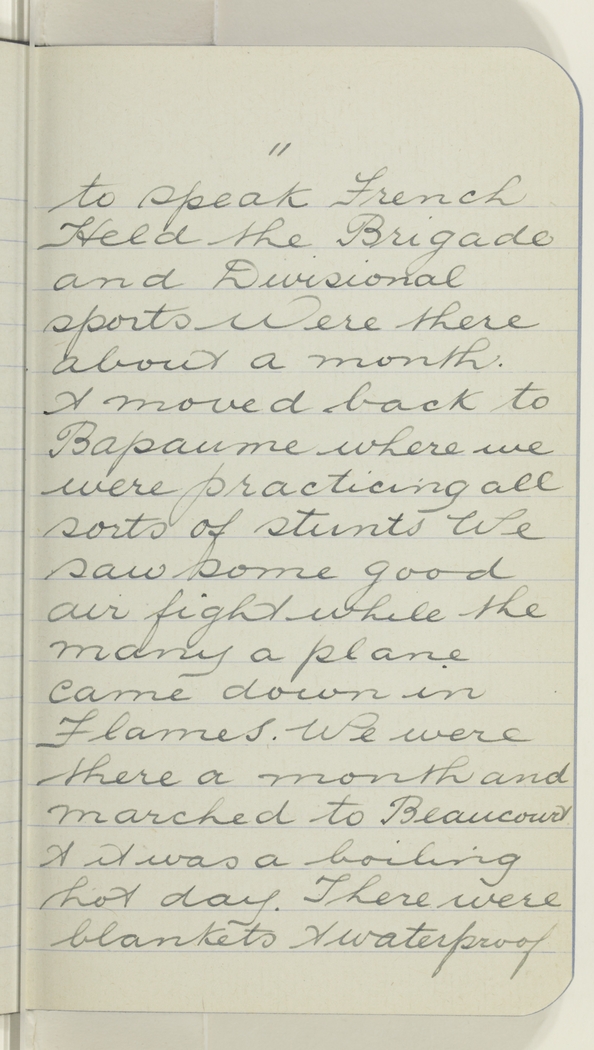 11
to speak French
Held the Brigade
and Divisional
sports Were there
about a month.
& moved back to
Bapaume where we
were practicing all
sorts of stunts We
saw some good
air fight while the
many a plane
came down in
Flames. We were
there a month and
marched to Beaucourt
& it was a boiling
hot day. There were
blankets & waterproof